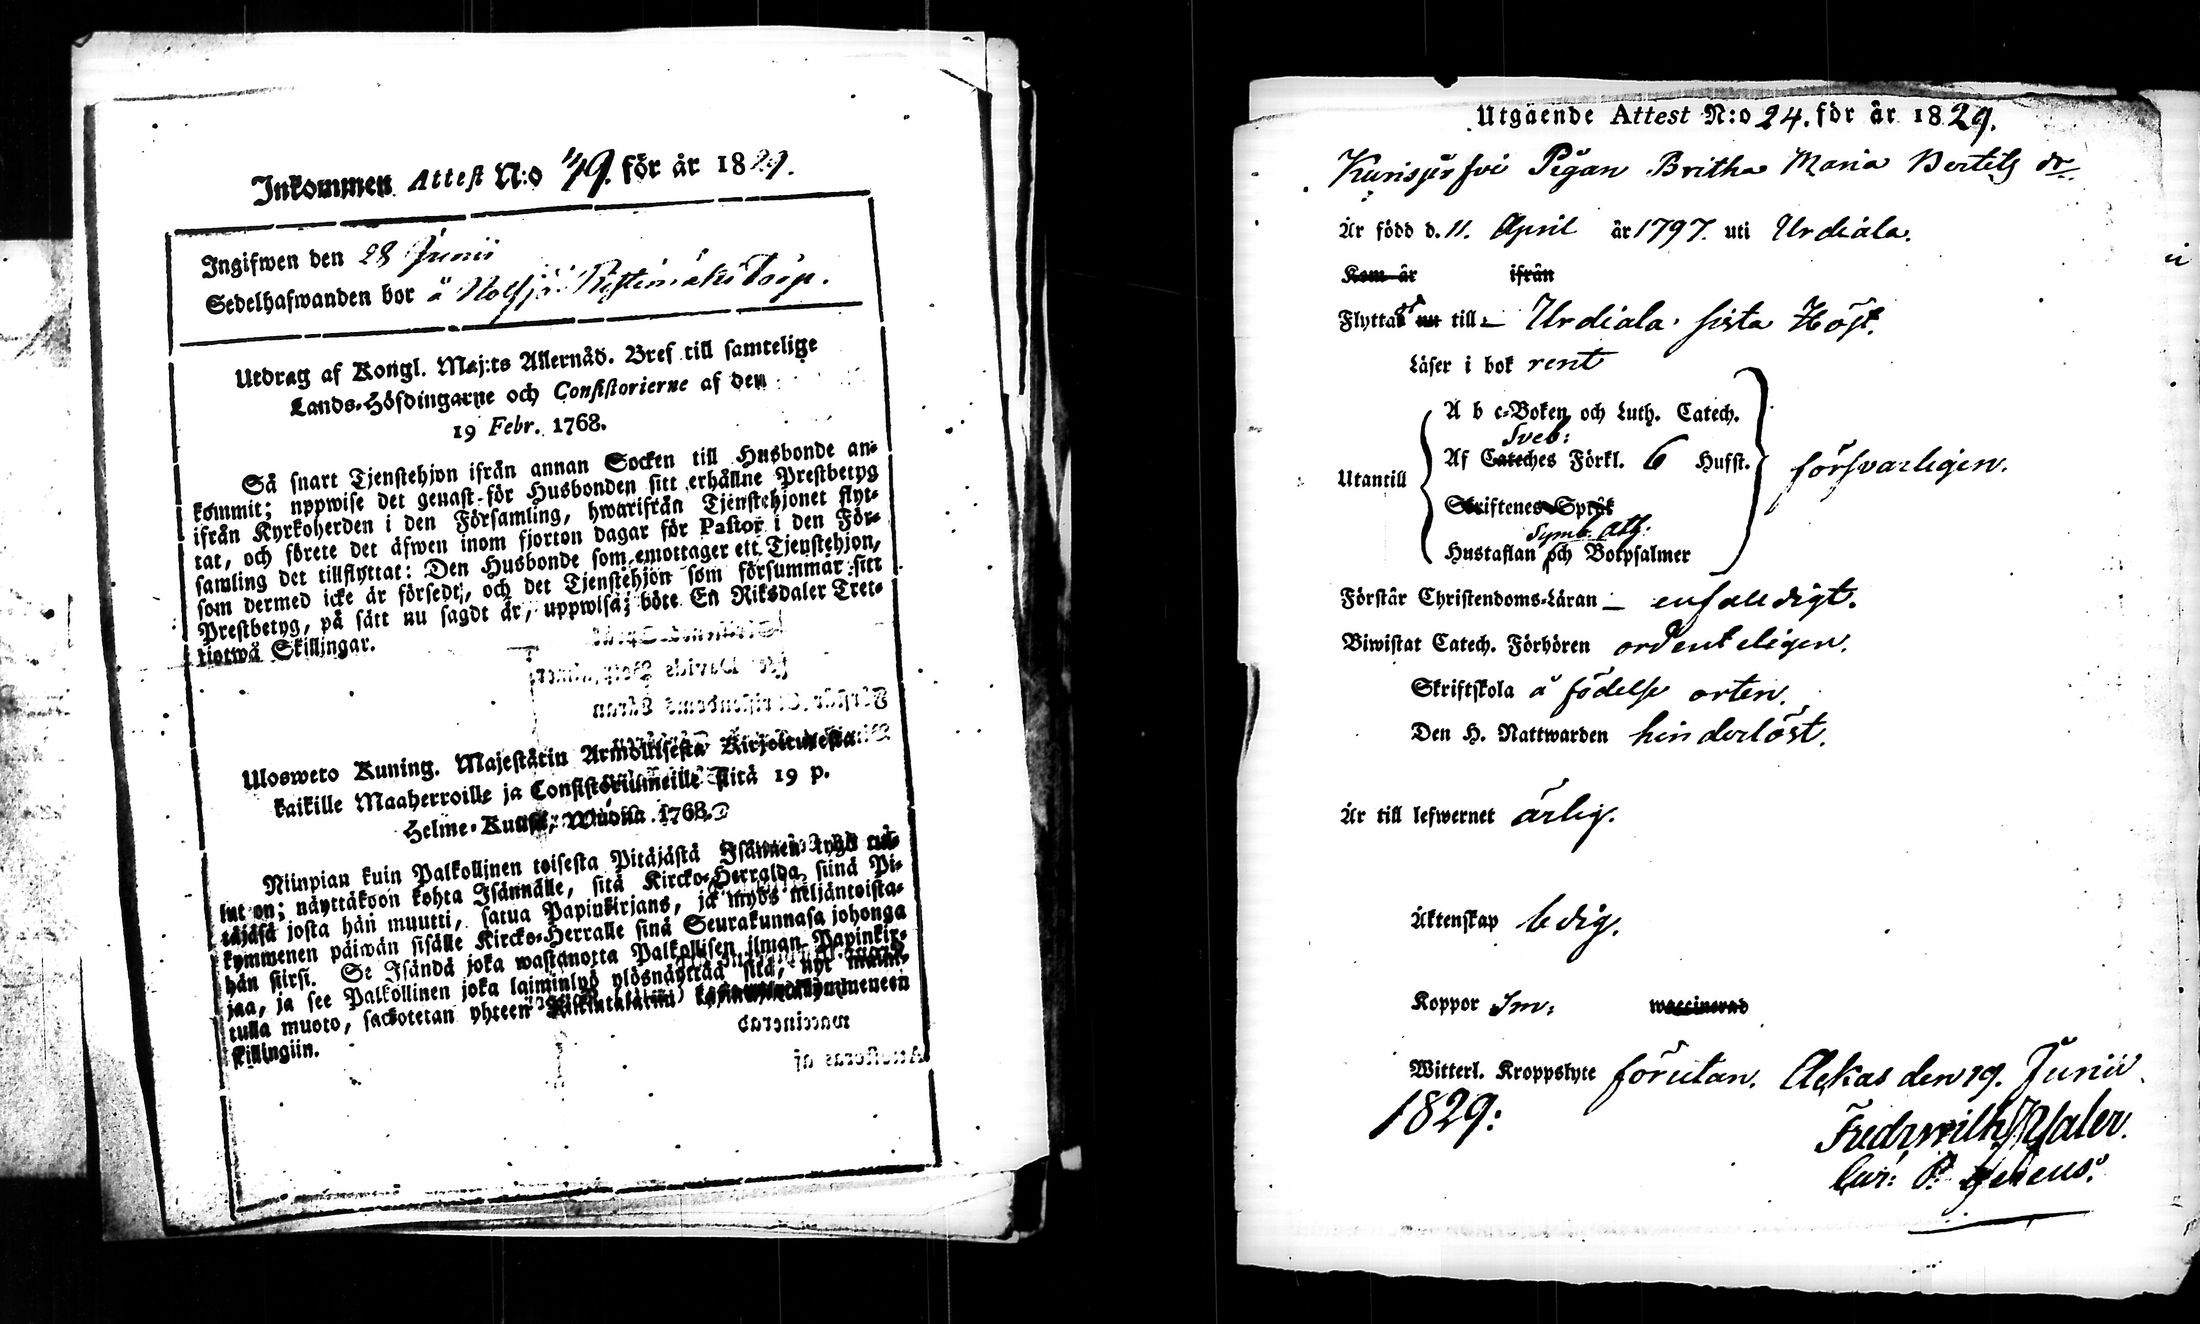 Inkommen Attest N:o 49. för år 1829.
Ingifwen den 28 Junii
Sedelhafwanden bor å
Utdrag af Kongl. Maj:ts Allernåd. Bref till samtelige
Lands-Höfdingarne och Consistorierne af den
19 Febr. 1768.
Så snart Tjenstehjon ifrån annan Socken till Husbonde an-
kommit; uppwise det genast för Husbonden sitt erhållne Prestbetyg
ifrån Kyrkoherden i den Församling, hwarifrån Tjenstehjonet flyt-
tat, och förete det äfwen inom fjorton dagar för Pastor i den För-
samling det tillflyttat: Den Husbonde som emottager ett Tjenstehjon,
som dermed icke är försedt, och det Tjenstehjon som försummar sitt
Prestbetyg, på sätt nu sagdt är, uppwisa; böte En Riksdaler Tret-
tiotwå Skillingar.
Ulosweto Kuning. Majestätin Armollisesta Kirjoituxesta
kaikille Maaherroille ja Consistoriumeille sitä 19 p.
Helme-Kuusa, Wuonna 1768.
Niinpian kuin Palkollinen toisesta Pitäjästä Isännän tygö tul-
lut on; näyttäköön kohta Isännälle, sitä Kircko-Herralda siinä Pi-
täjäsä josta hän muutti, saatua Papinkirjans, ja myös neljäntoista-
kymmenen päiwän sisälle Kircko-Herralle siinä Seurakunnasa johonga
hän siirsi. Se Isändä joka wastanotta Palkollisen ilman Papinkir-
jaa, ja see Palkollinen joka laiminlyö ylösnäyttää sitä, nyt maini-
tulla muoto, sackotetan yhteen Rikintalarini
killingiin.
Utgående Attest N:o 24. för år 1829.
Pigan Britha Maria Bertels dr.
Är född d. 11. April år 1797. uti Urdiala.
Kom år ifrån
Flyttade nu till Urdiala sista Höst.
Läser i bok rent
A b c-Boken och Luth. Catech.
Sveb:
Utantill Af Cateches Förkl. 6 Hufst. försvarligen.
Skriftenes Språk
Symb. Ath.
Hustaflan och Botpsalmer
Förstår Christendoms-Läran enfalldigt.
Biwistat Catech. Förhören ordenteligen.
Skriftskola å födelse orten.
Den H. Nattwarden hinderlöst.
Är till lefwernet ärlig.
Äktenskap ledig.
Koppor waccinerad
Witterl. Kroppslyte förutan. Ackas den 19. Junii
1829: